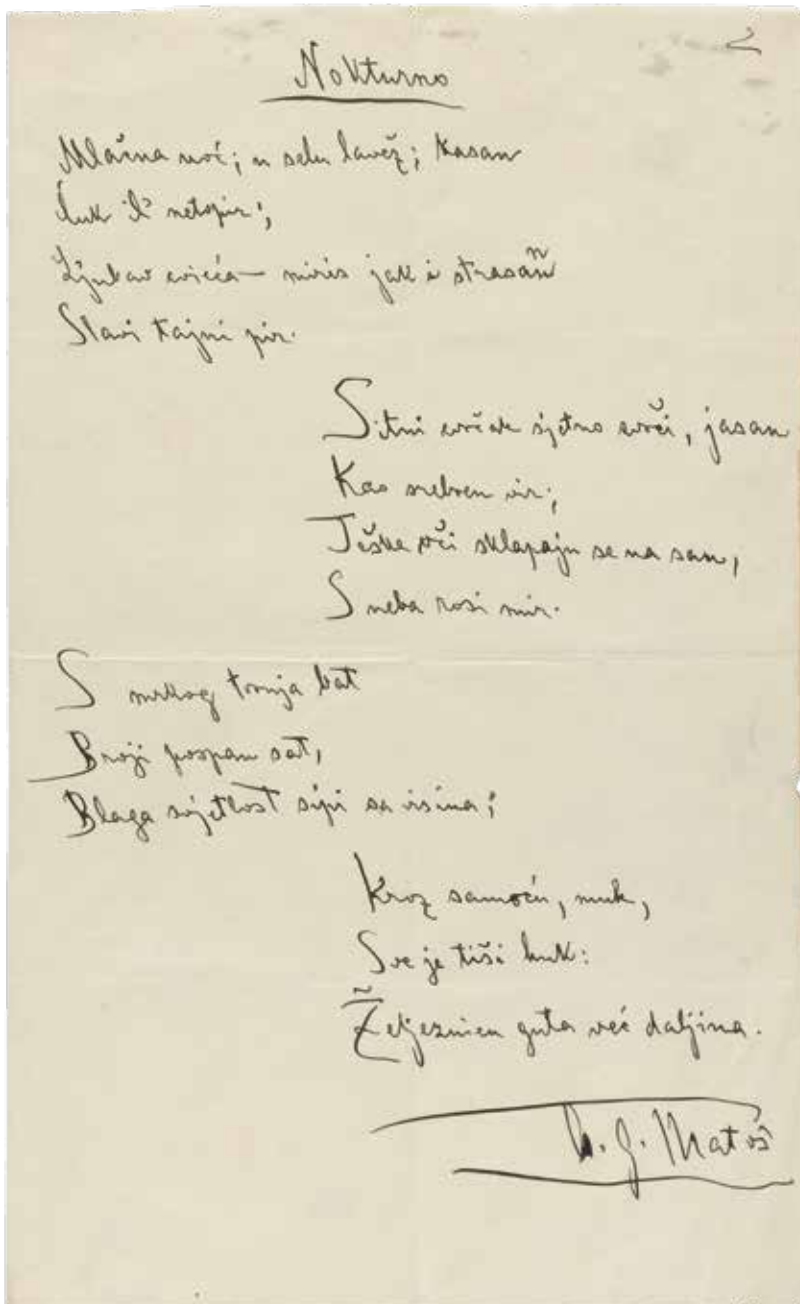 2
Nokturno
Mlačna noć; u selu lavež; kasan
Ćuk il' netopir;
Ljubav cvieća — miris jak i strasan
Slavi tajni pir.
Sitni cvrčak sjetno cvrči, jasan
Kao srebren vir;
Teške oči sklapaju se na san,
S neba rosi mir.
S mrkog tornja bat
Broji pospan sat,
Blaga svjetlost sipi sa visina;
Kroz samoću, muk,
Sve je tiši huk:
Željeznicu guta već daljina.
A. G. Matoš